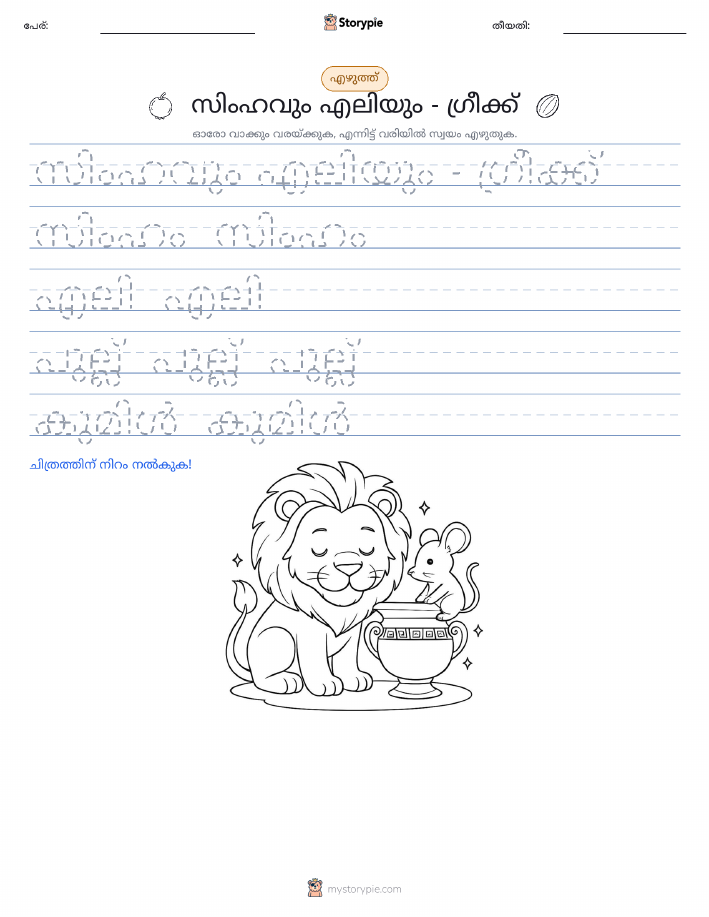 പേര്:
Storypie
തീയതി:
എഴുത്ത്
സിംഹവും എലിയും - ഗ്രീക്ക്
ഓരോ വാക്കും വരയ്ക്കുക, എന്നിട്ട് വരിയിൽ സ്വയം എഴുതുക.
സിംഹവും എലിയും - ഗ്രീക്ക്
സിംഹം സിംഹം
എലി എലി
പുല്ല് പുല്ല് പുല്ല്
കുമിൾ കുമിൾ
ചിത്രത്തിന് നിറം നൽകുക!
mystorypie.com